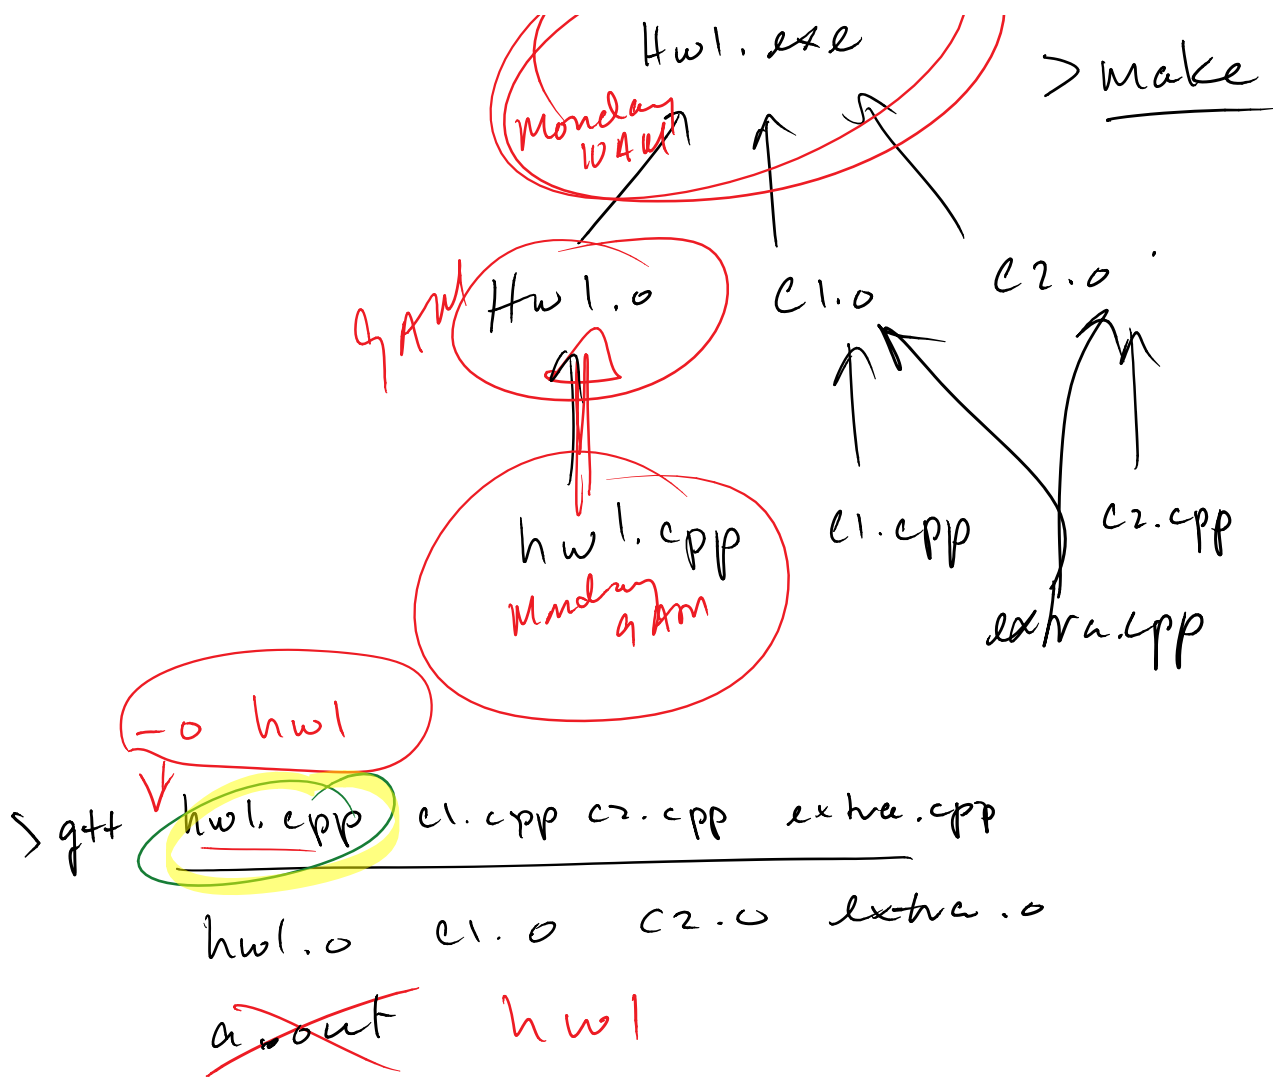 Hw1.exe
> make
Monday
10 AM
9 AM
Hw1.o
C1.o
C2.o
hw1.cpp
C1.cpp
C2.cpp
Monday
9 AM
extra.cpp
-o hw1
> g++ hw1.cpp c1.cpp c2.cpp extra.cpp
hw1.o c1.o c2.o extra.o
a.out hw1